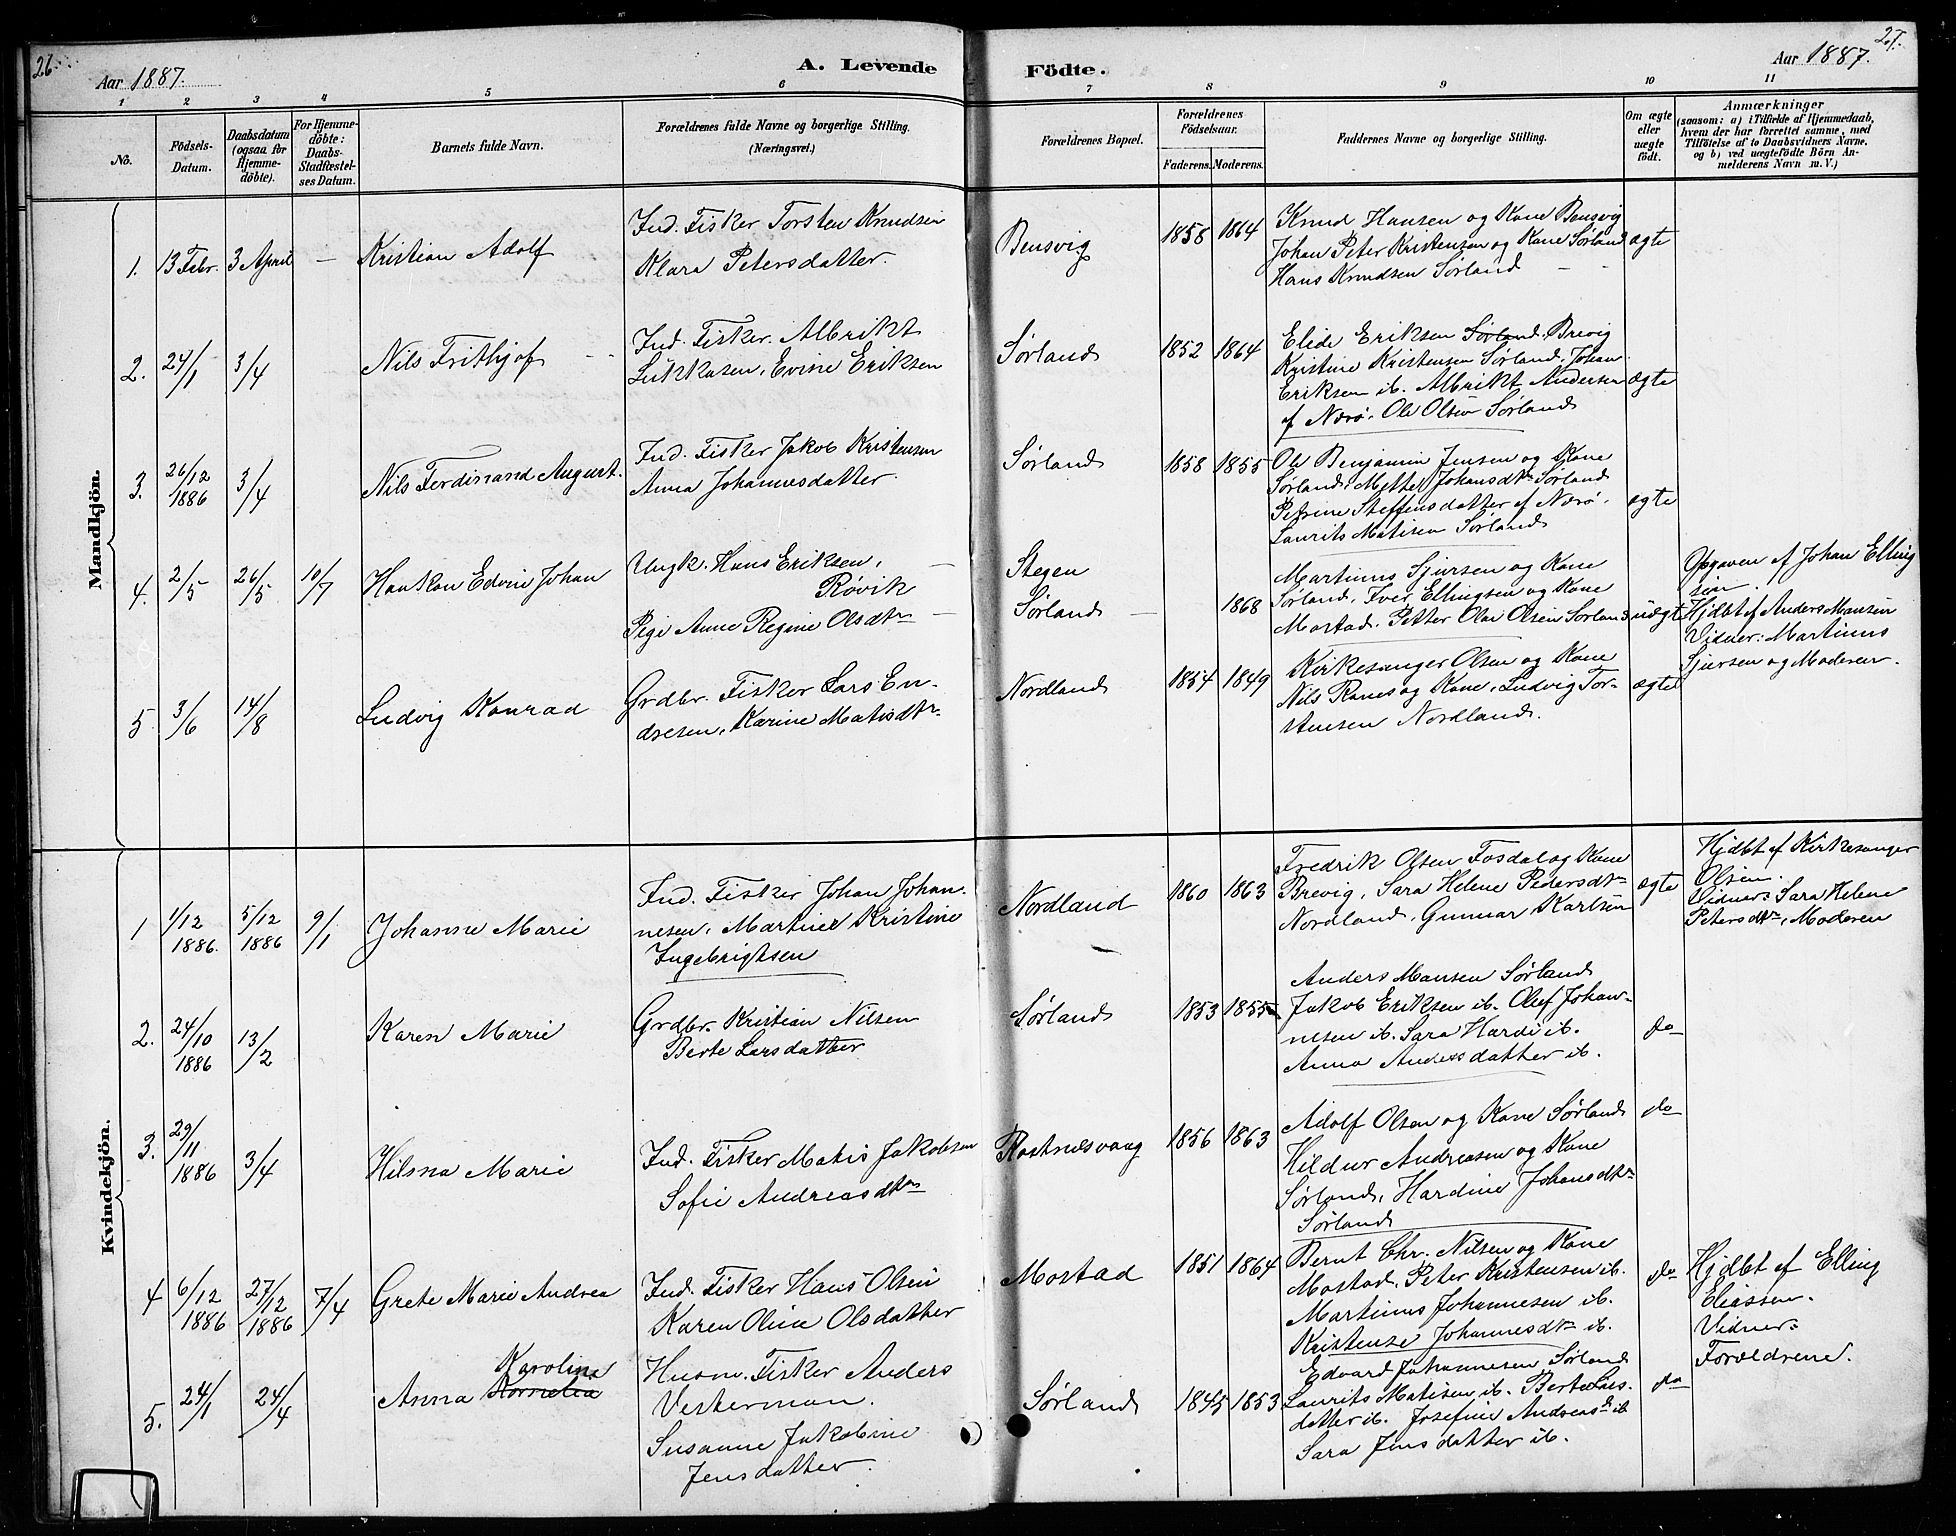 26.
Aar 1887.
A. Levende
Födte.
Aar 1887.
27.
1 2 3 4 5 6 7 8 9 10 11
No.
Födsels-
Datum.
Daabsdatum
(ogsaa for
Hjemme-
döbte).
For Hjemme-
döbte:
Daabs-
Stadfæstel-
ses Datum.
Barnets fulde Navn.
Forældrenes fulde Navne og borgerlige Stilling.
(Næringsvei.)
Forældrenes Bopæl.
Forældrenes
Födselsaar.
Faderens. Moderens.
Faddernes Navne og borgerlige Stilling.
Om ægte
eller
uægte
födt.
Anmærkninger
(saasom: a) i Tilfælde af Hjemmedaab,
hvem der har forrettet samme, med
Tilföielse af to Daabsvidners Navne,
og b) ved uægtefödte Börn An-
melderens Navn m. V.)
Mandkjön.
1. 13 Febr. 3 April — Kristian Adolf
Ind. Fisker Torsten Knudsen
Klara Petersdatter.
Bensvig
1858 1864
Knud Hansen og Kone Bensvig
Johan Peter Kristensen og Kone Sørland
Hans Knudsen Sørland
ægte
2. 24/1 3/4 Nils Frithjof
Ind. Fisker. Albrikt
Lukkasen, Evine Eriksen
Sørland
1852 1864
Elide Eriksen Sørland, Brevig
Kristine Kristensen Sørland. Johan
Eriksen ib. Albrikt Andersen
af Nærø. Ole Olsen Sørland
ægte
3. 26/12 1886 3/4 Nils Ferdinand August.
Ind. Fisker Jakob Kristensen
Anna Johannesdatter.
Sørland
1858 1855
Ole Benjamin Jensen og Kone
Sørland, Mette Johansdtr Sørland
Petrine Steffensdatter af Nærø.
Laurits Matisen Sørland
ægte
4. 2/5 26/5 10/7 Haakon Edvin Johan
Ungk. Hans Eriksen,
Røvik
Pige Anne Regine Olsdtr
Stegen
Sørland
1868
Martinus Sjursen og Kone
Sørland, Iver Ellingsen og Kone
Mostad. Petter Olai Olsen Sørland
uægte
Opgaven af Johan Elling
sen.
Hjdbt af Anders Mansen
Vidner: Martinus
Sjursen og Moderen.
5. 3/6 14/8 Ludvig Konrad
Grdbr. Fisker Lars En-
dresen, Karine Matisdtr
Nordland
1854 1849
Kirkesanger Olsen og Kone
Nils Ranes og Kone, Ludvig Tor-
stensen Nordland.
ægte
Kvindekjön.
1 1/12 1886. 5/12 1886 9/1 Johanne Marie
Ind. Fisker Johan Johan-
nesen, Martine Kristine
Ingebrigtsen
Nordland
1860 1863
Fredrik Olsen Fosdal og Kone
Brevig, Sara Helene Pedersdtr
Nordland, Gunnar Karlsen
ægte
Hjdbt af Kirkesanger
Olsen.
Vidner Sara Helene
Petersdtr, Moderen
2. 24/10 1886 13/2 Karen Marie
Grdbr. Kristian Nilsen
Berte Larsdatter
Sørland
1853 1855
Anders Mansen Sørland
Jakob Eriksen ib. Oluf Johan-
nesen ib. Sara Hardi ib.
Anna Andersdatter ib.
do
3. 29/11 1886 3/4 Hilma Marie
Ind. Fisker Matis Jakobsen
Sofie Andreasdtr
Rostnesvaag
1856 1863
Adolf Olsen og Kone Sørland
Hildur Andreasen og Kone
Sørland, Hardine Johansdtr
Sørland
do
4 6/12 1886 27/12 1886 7/4 Grete Marie Andrea
Ind. Fisker Hans Olsen
Karen Oline Olsdatter
Mostad
1851 1864
Bernt Chr. Nilsen og Kone
Mostad, Peter Kristensen ib.
Martinus Johannesen ib.
Kristense Johannesdtr ib.
do
Hjdbt af Elling
Eliassen.
Vidner
Forældrene.
5. 24/1 24/4 Anna Kornelia Karoline
Husm. Fisker Anders
Vesterman.
Susanne Jakobine
Jensdatter.
Sørland
1845 1853
Edvard Johannesen Sørland
Laurits Matisen ib. Berte Lars-
datter ib. Josefine Andreasd ib
Sara Jensdatter ib.
do